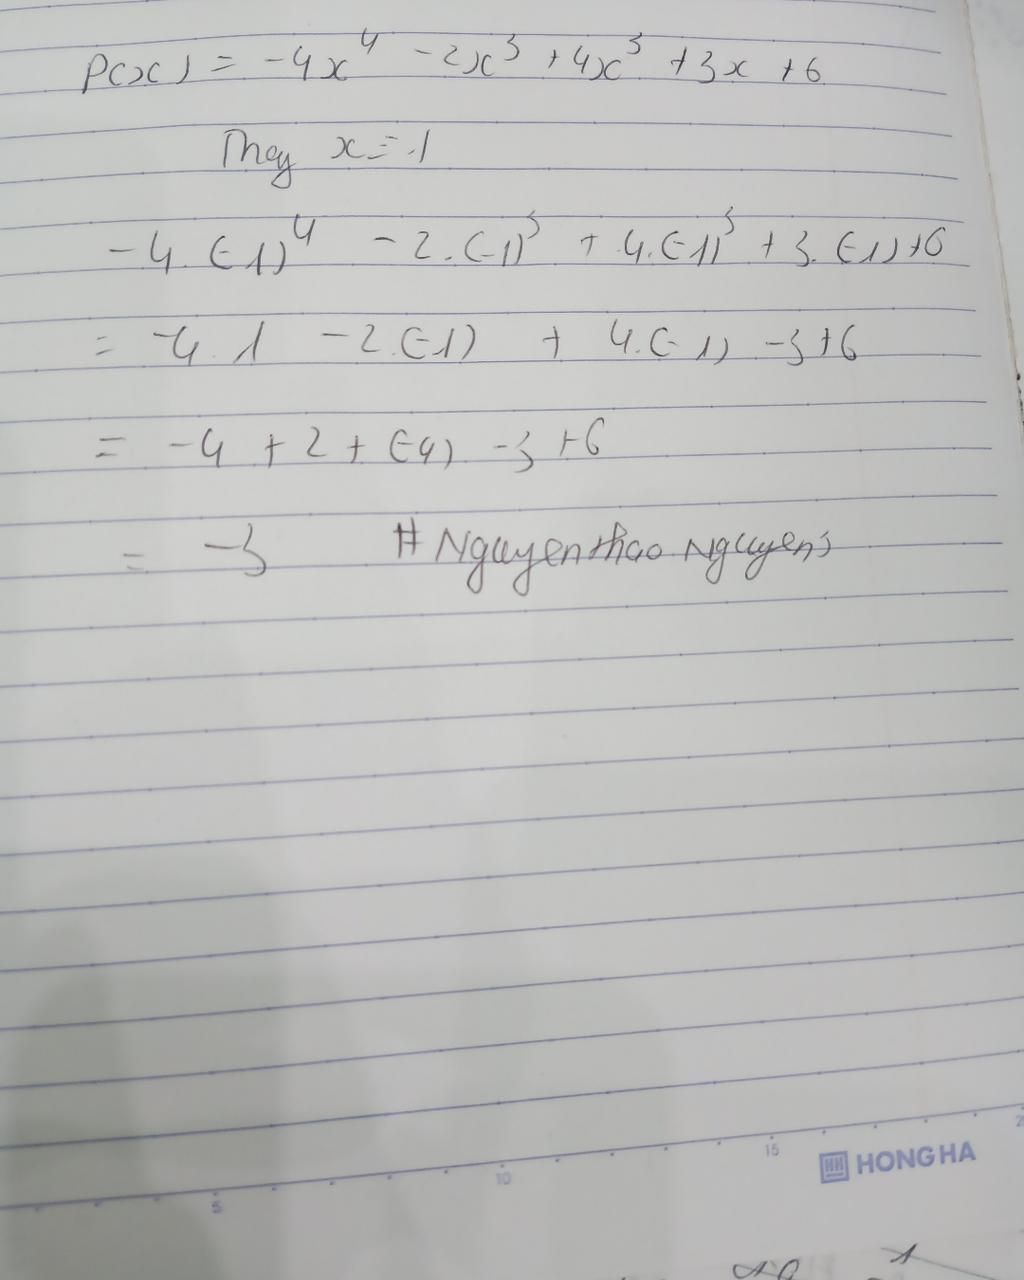 P(x) = -4x⁴ - 2x³ + 4x³ + 3x + 6
Thay x = -1
-4.(-1)⁴ - 2.(-1)³ + 4.(-1)³ + 3.(-1)+6
= -4.1 - 2.(-1) + 4.(-1) -3+6
= -4 + 2 + (-4) -3 +6
= -3 # Nguyenthao Nguyens
5
10
15
HONG HA